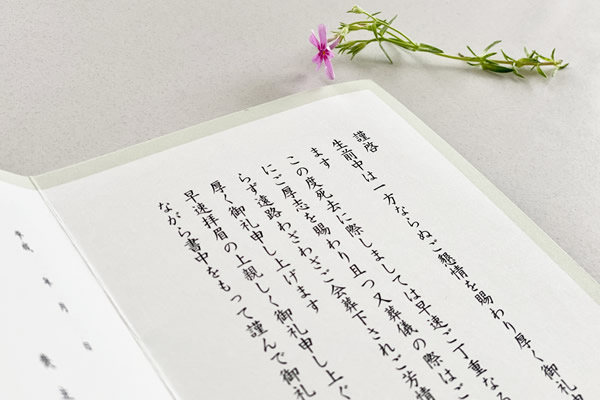 謹啓
生前中は一方ならぬご懇情を賜わり厚く御礼申
ます
この度死去に際しましては早速ご丁重なる
にご厚志を賜わり且つ又葬儀の際はご
らず遠路わざわざご会葬下されご芳情
厚く御礼申し上げます
早速拝眉の上親しく御礼申し上ぐ
ながら書中をもって謹んで御礼
年 月 日